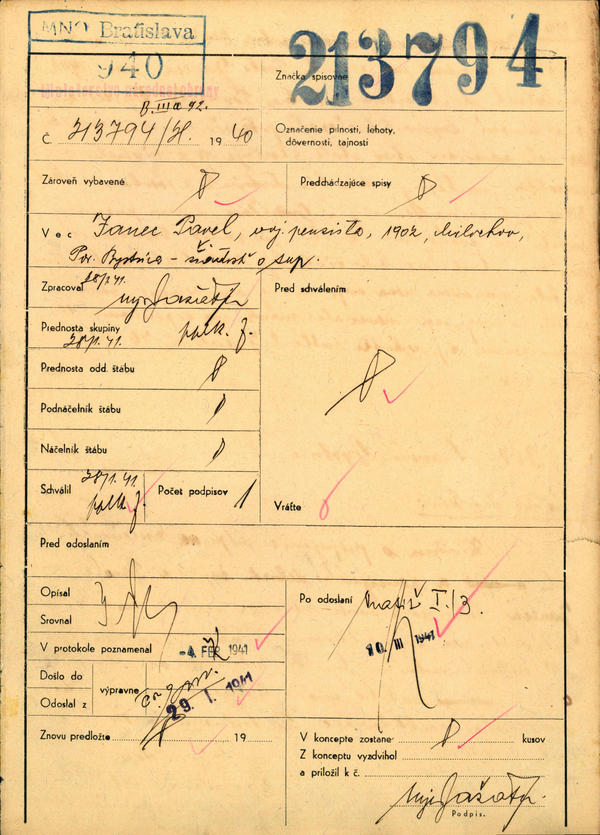 MNO Bratislava
940
213794
Značka spisovne
Ministerstvo národnej obrany
č 213794/ 1940
Označenie pilnosti, lehoty,
dôvernosti, tajnosti
Zároveň vybavené
Predchádzajúce spisy
Vec Janec Pavel, voj. pensista, 1902, Milochov,
Pov. Bystrica – žiadosť o
Zpracoval 28/1.41.
Pred schválením
Prednosta skupiny
28/1.41. pplk.
Prednosta odd. štábu
Podnáčelník štábu
Náčelník štábu
28/1.41.
Schválil pplk.
Počet podpisov 1
Vráťte
Pred odoslaním
Opísal
Srovnal
Po odoslaní I./3.
V protokole poznamenal -4. FEB. 1941
10. III 1941
Došlo do
výpravne
Odoslal z
29. I. 1941
Znovu predložte 19
V koncepte zostane kusov
Z konceptu vyzdvihol
a priložil k č.
Podpis.